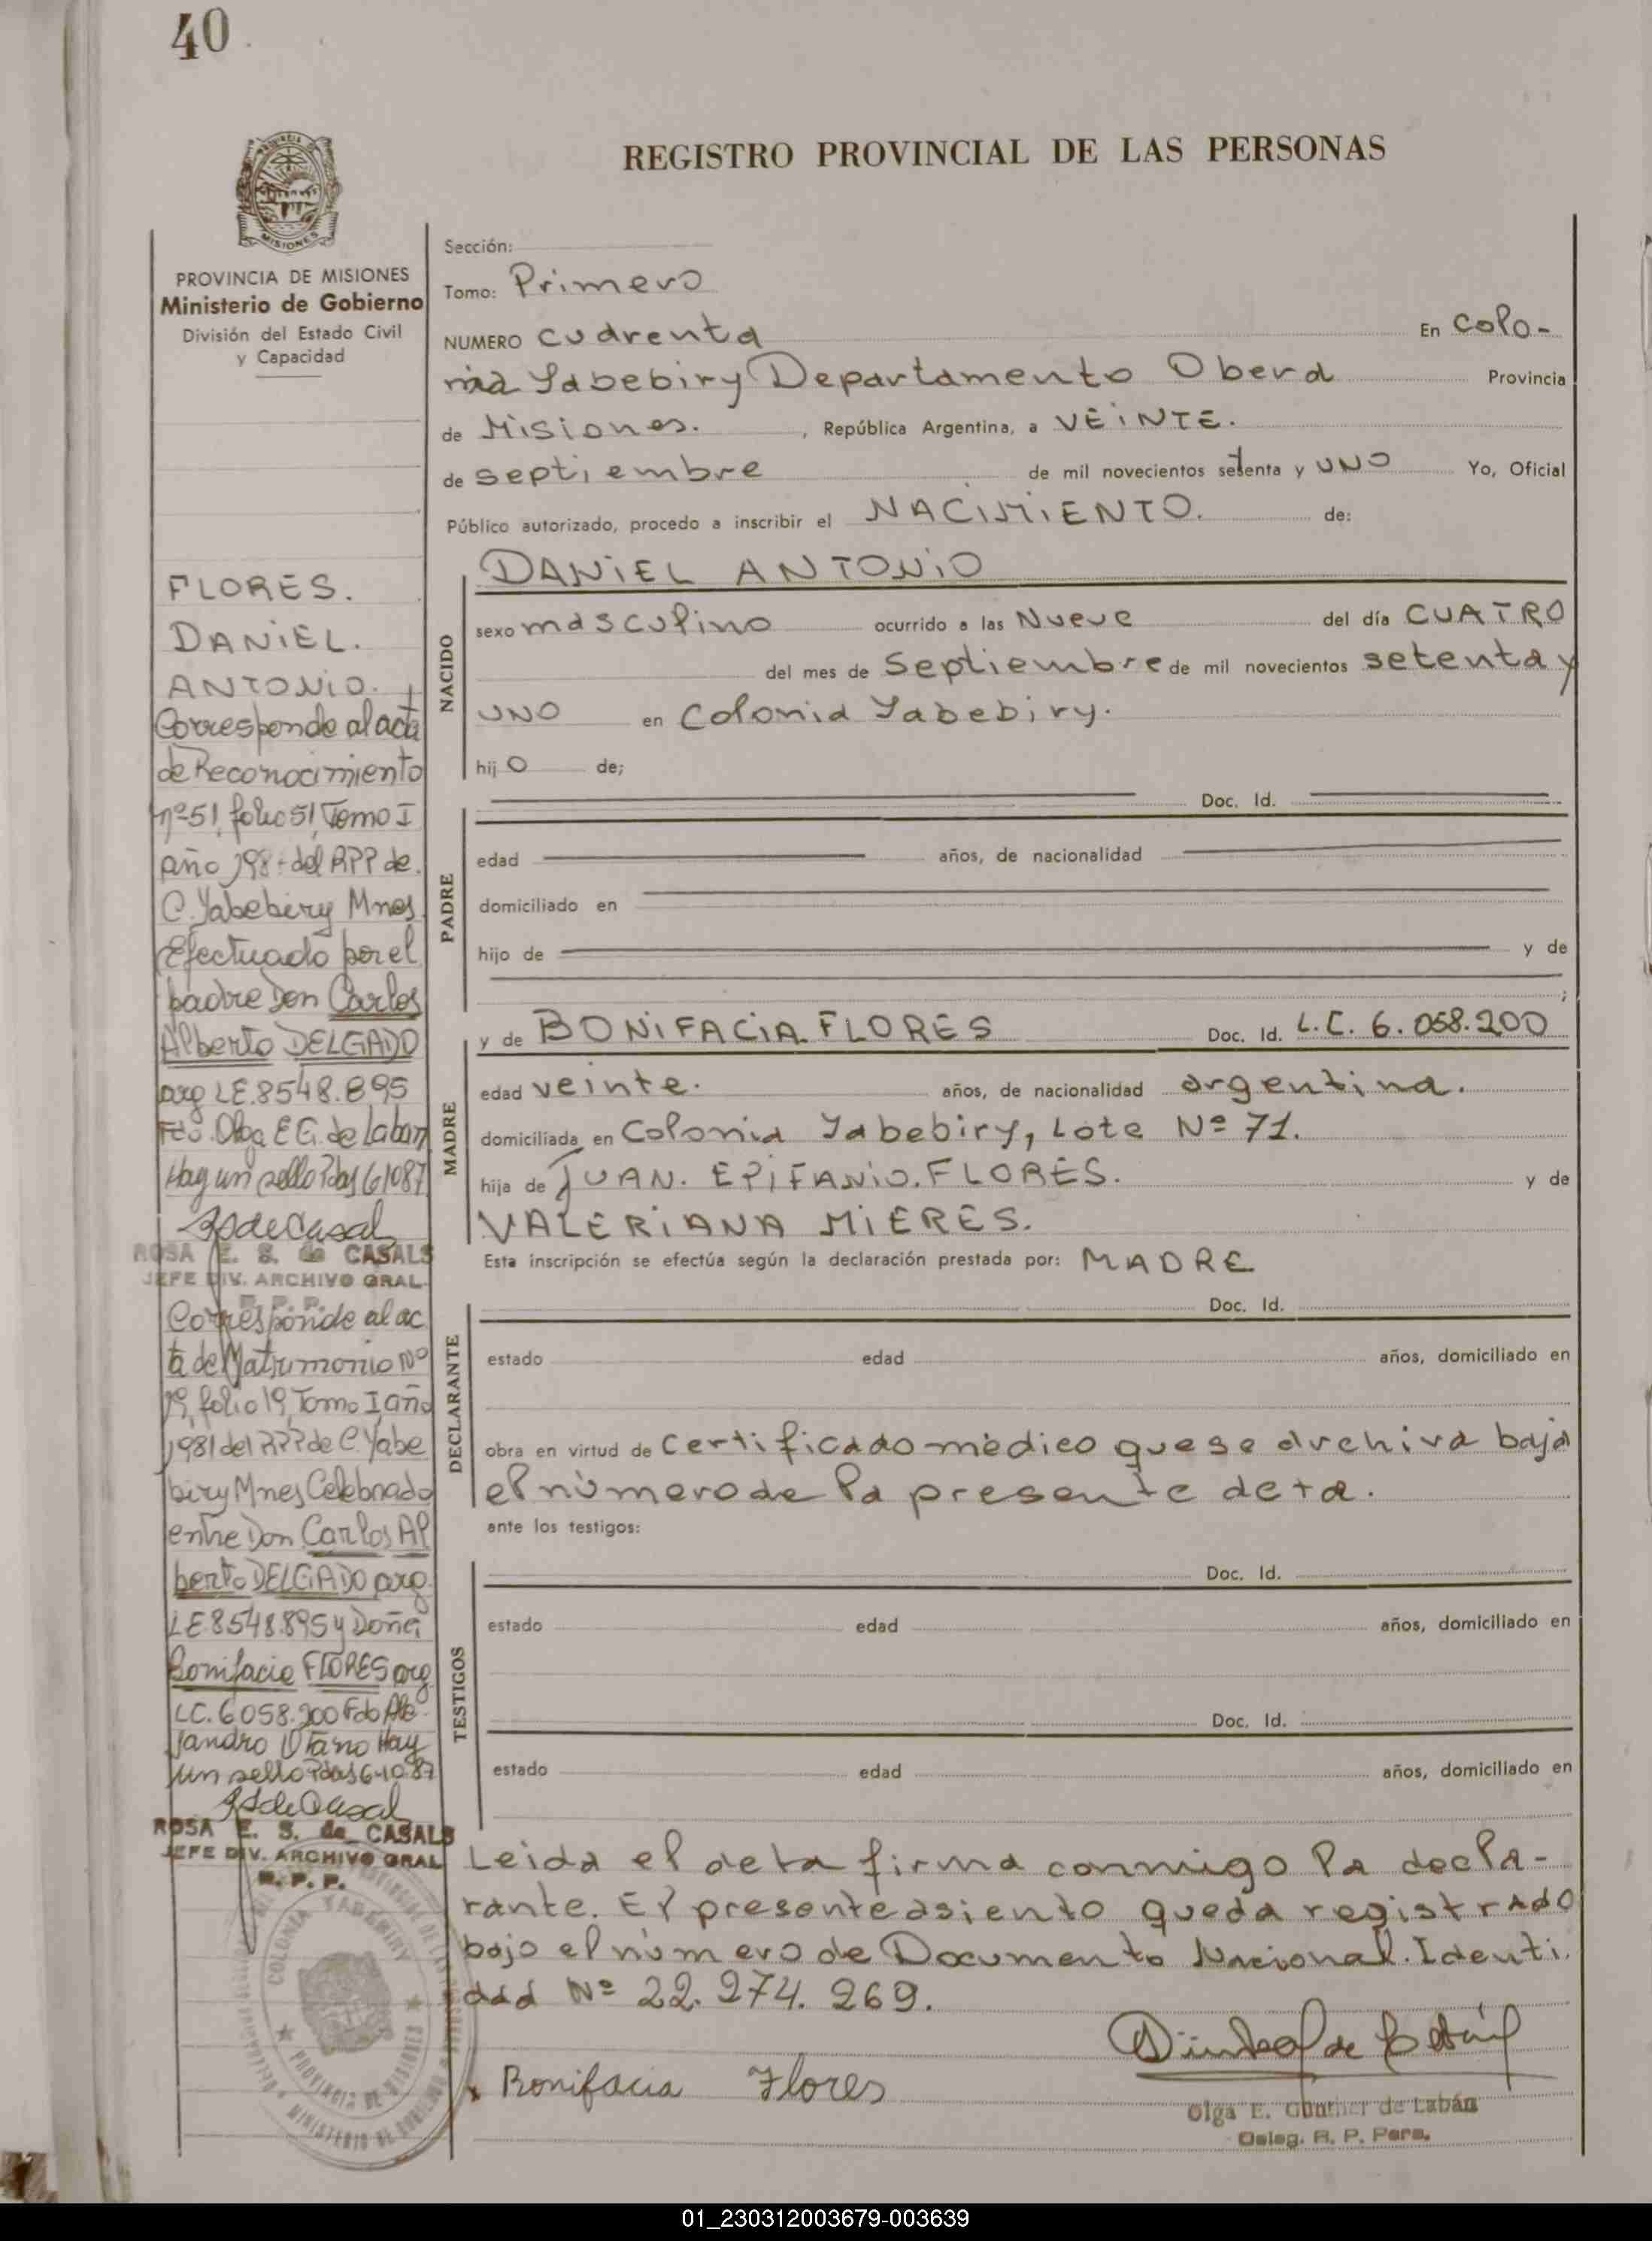 40
REGISTRO PROVINCIAL DE LAS PERSONAS
MISIONES
PROVINCIA DE MISIONES
Ministerio de Gobierno
División del Estado Civil
y Capacidad
FLORES.
DANIEL.
ANTONIO.
Corresponde al acta
de Reconocimiento
nº 51, folio 51, Tomo I
año 198 del RPP de
C. Yabebiry Mnes
Efectuado por el
padre Don Carlos
Alberto DELGADO
arg LE. 8548.895
Fdo. Olga E G. de Laban
Hay un sello Pdas 61087
ROSA E. S. de CASALS
JEFE DIV. ARCHIVO GRAL.
R. P. P.
Corresponde al ac
ta de Matrimonio Nº
19, folio 19, Tomo I, año
1981 del RPP de C Yabe
biry Mnes Celebrado
entre Don Carlos Al
berto DELGADO arg.
LE 8548.895 y Doña
Bonifacia FLORES arg
LC. 6058.200 Fdo Ale
jandro Otaño Hay
un sello Pdas 6-10-87
ROSA E. S. de CASALS
JEFE DIV. ARCHIVO GRAL
R. P. P.
COLONIA YABEBIRY
PROVINCIA DE MISIONES
Sección:
Tomo: Primero
NUMERO cuarenta En Colo-
nia Yabebiry Departamento Obera Provincia
de Misiones. , República Argentina, a VEINTE.
de septiembre de mil novecientos setenta y UNO Yo, Oficial
Público autorizado, procedo a inscribir el NACIMIENTO. de:
NACIDO
DANIEL ANTONIO
sexo masculino ocurrido a las Nueve del día CUATRO
del mes de Septiembre de mil novecientos setenta y
UNO en Colonia Yabebiry.
hij O de;
PADRE
Doc. Id.
edad años, de nacionalidad
domiciliado en
hijo de y de
;
MADRE
y de BONIFACIA FLORES Doc. Id. L.C. 6.058.200
edad veinte. años, de nacionalidad argentina.
domiciliada en Colonia Yabebiry, Lote Nº 71.
hija de JUAN. EPIFANIO. FLORES. y de
VALERIANA MIERES.
Esta inscripción se efectúa según la declaración prestada por: MADRE
DECLARANTE
Doc. Id.
estado edad años, domiciliado en
obra en virtud de certificado mèdico que se archiva bajo
el nùmero de la presente acta.
ante los testigos:
TESTIGOS
Doc. Id.
estado edad años, domiciliado en
Doc. Id.
estado edad años, domiciliado en
Leida el acta firma conmigo la decla-
rante. El presente asiento queda registrado
bajo el nùmero de Documento Nacional. Identi.
dad Nº 22.274.269.
x Bonifacia Flores
Olga E. Gunther de Labán
Deleg. R. P. Pers.
01_230312003679-003639